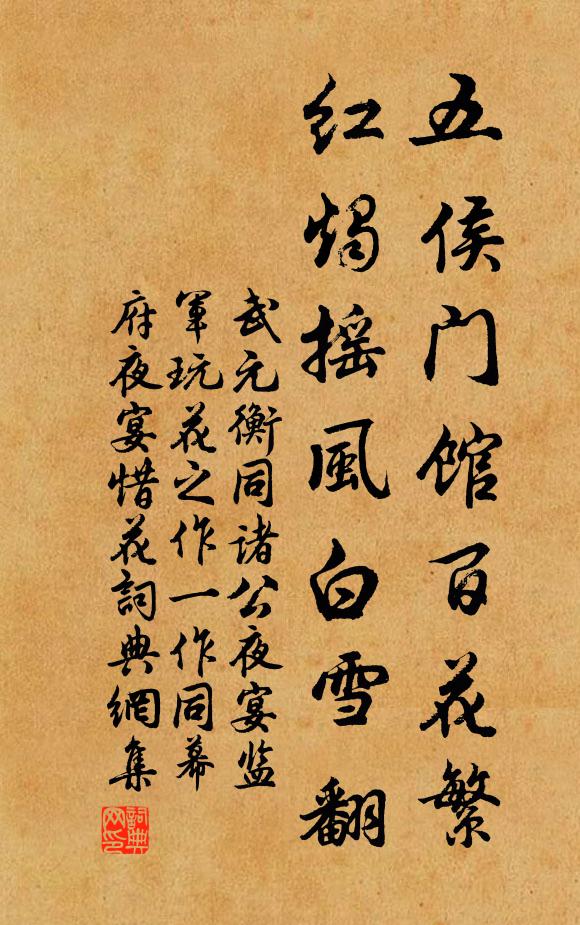 五侯门馆百花繁
红烛摇風白雪翻
武元衡同诸公夜宴监
軍玩花之作一作同幕
府夜宴惜花詞典網集
詞典
网印